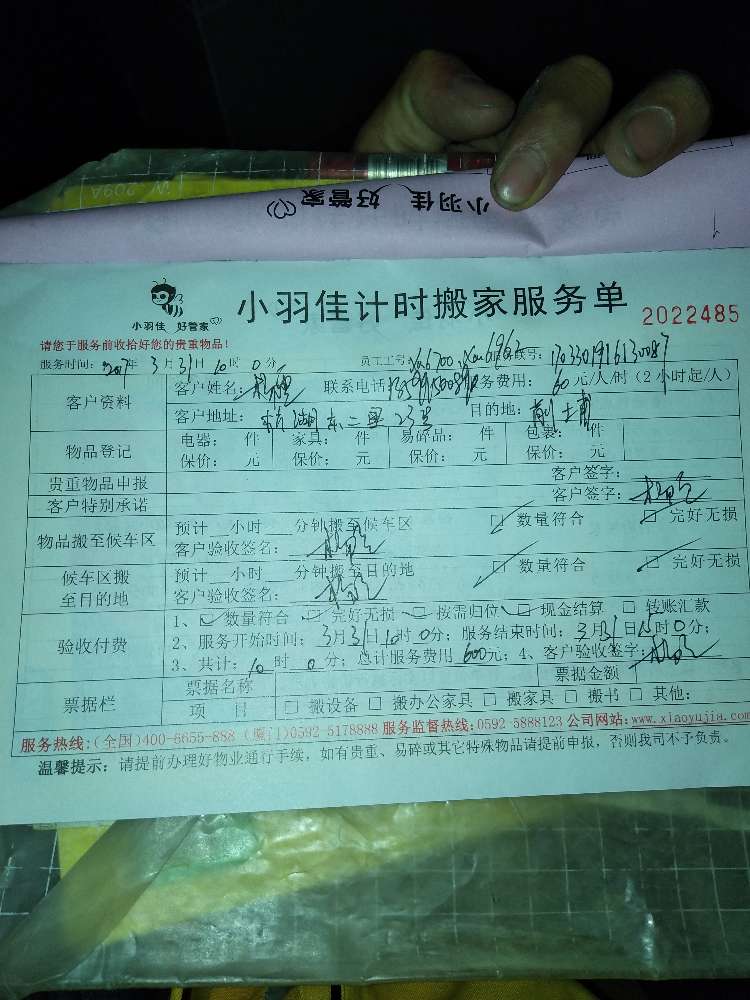 小羽佳 好管家
小羽佳 好管家
小羽佳计时搬家服务单
2022485
请您于服务前收拾好您的贵重物品!
服务时间: 2017年 3月31日 10时 0分 员工工号:
客户资料
客户姓名: 联系电话: 服务费用: 60元/人/时 (2小时起/人)
客户地址: 东二里23号 目的地: 前埔
物品登记
电器: 件 家具: 件 易碎品: 件 包裹: 件
保价: 元 保价: 元 保价: 元 保价: 元
贵重物品申报 客户签字:
客户特别承诺 客户签字:
物品搬至候车区
预计 小时 分钟搬至候车区 □ 数量符合 □ 完好无损
客户验收签名:
候车区搬至目的地
预计 小时 分钟搬至目的地 □ 数量符合 □ 完好无损
客户验收签名:
验收付费
1、□ 数量符合 □ 完好无损 □ 按需归位 □ 现金结算 □ 转账汇款
2、服务开始时间: 3月31日10时0分; 服务结束时间: 3月31日15时0分;
3、共计: 10时 0分; 总计服务费用 600元; 4、客户验收签字:
票据栏
票据名称 票据金额
项 目 □ 搬设备 □ 搬办公家具 □ 搬家具 □ 搬书 □ 其他:
服务热线:(全国)400-6655-888 (厦门)0592-5178888 服务监督热线:0592-5888123 公司网站:www.xiaoyujia.com
温馨提示: 请提前办理好物业通行手续, 如有贵重、易碎或其它特殊物品请提前申报, 否则我司不予负责。